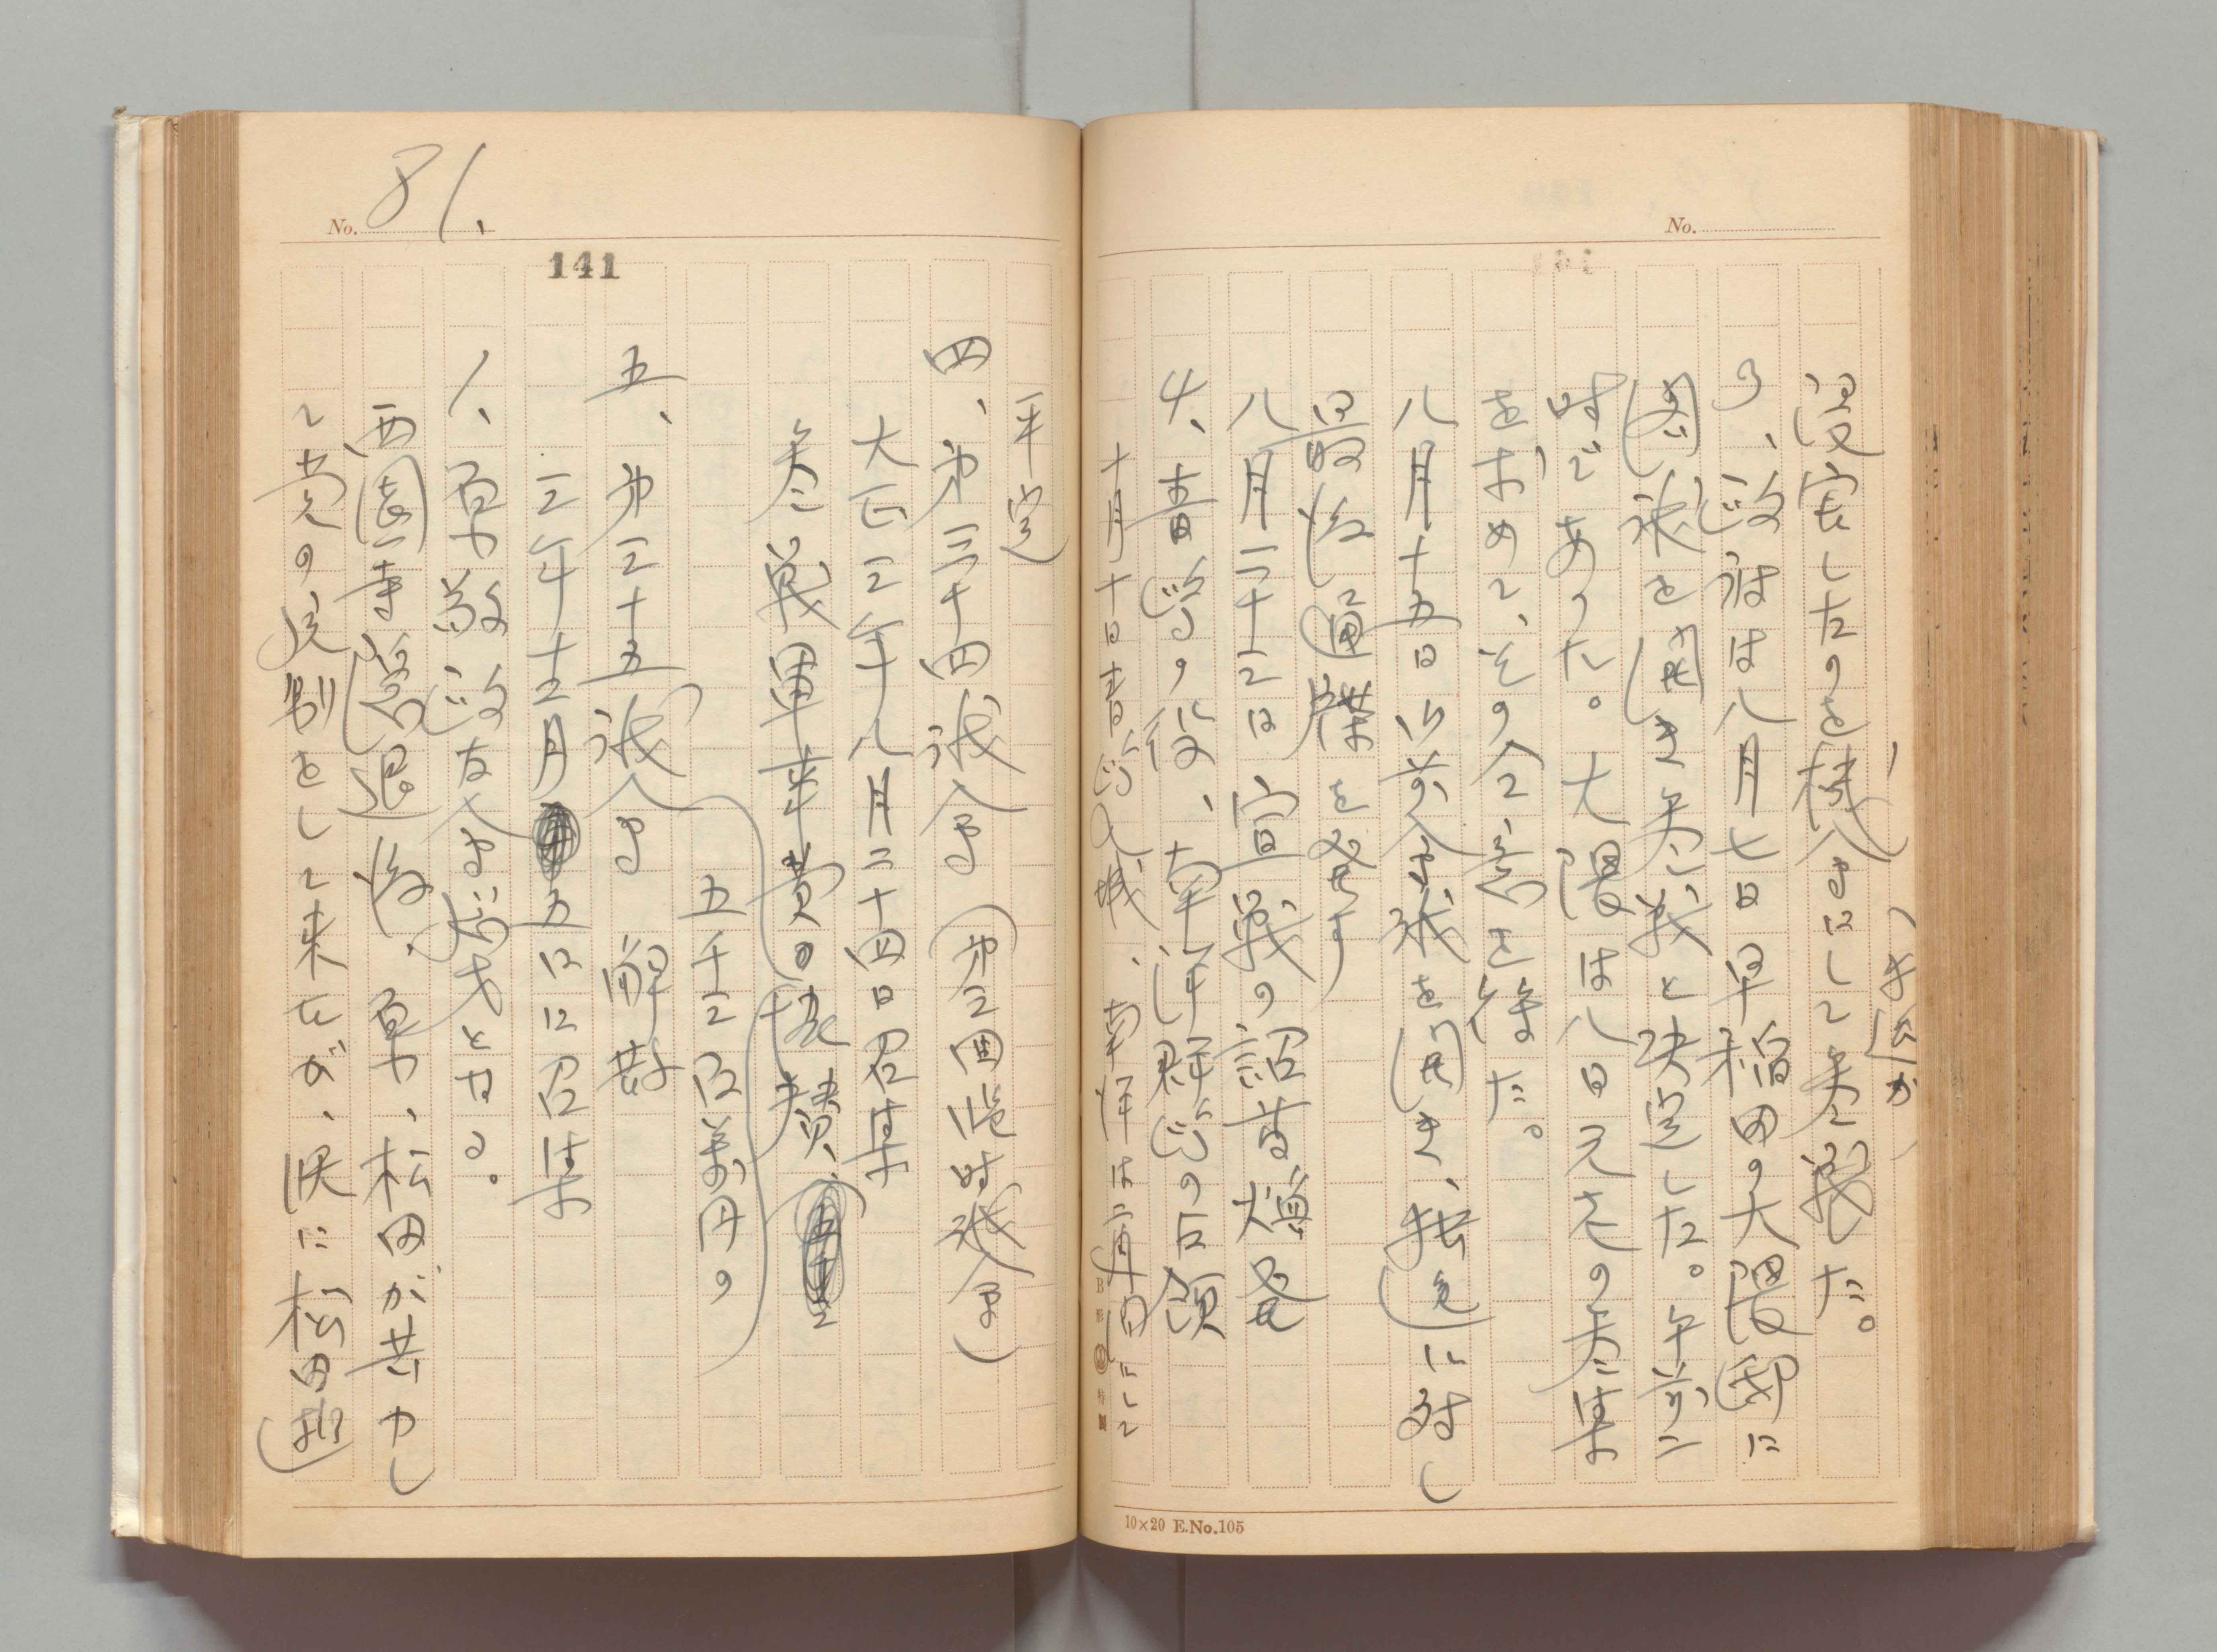 No.
(きほか)
没実したのを機会にして参戦した。
3、政府は八月七日早稲田の大隈邸に
閣議を開き参戦と決定した。午前二
時であった。大隈は八日元老の参集
をもとめて、その合意を得た。
八月十五日御前会議を開き、独逸に対し
最後通牒を発す
八月二十三日宣戦の詔書煥発
4、青島の役、南洋群島の占領
十月十日青島入城、南洋は二週間にして
B形 特製
10×20 E.No.105
No. 81.
141
平定
四、第三十四議会(第三回臨時議会)
大正三年八月二十四日召集
参戦軍事費の協賛、
五千三百萬円の
五、第三十五議会 解散
三年十二月五日に召集
1、原敬政友会総裁となる。
西園寺隠退後、原、松田が苦力し
て党の統制をして来たが、次に松田逝